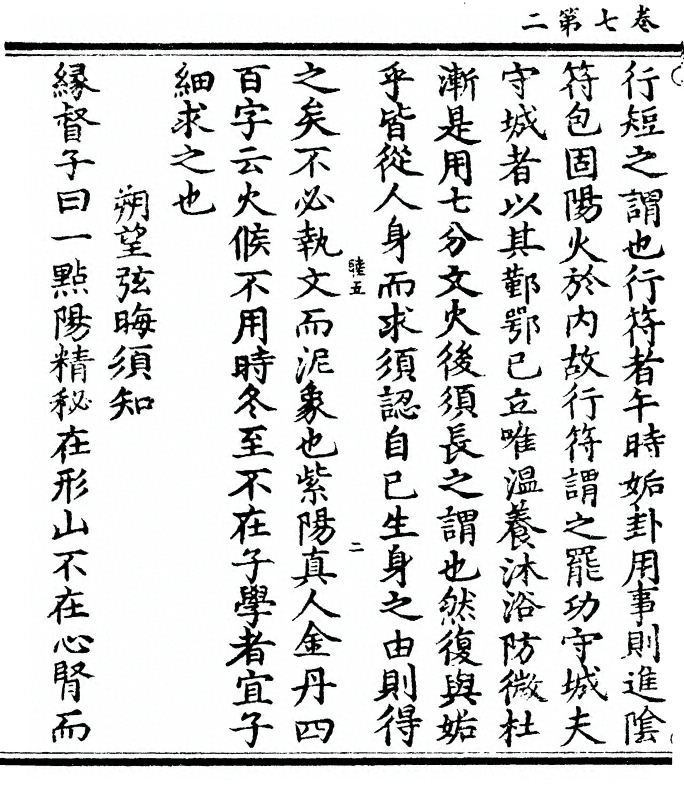 卷七第二
行短之謂也行符者午時姤卦用事則進陰
符包固陽火於内故行符謂之罷功守城夫
守城者以其鄞鄂已立唯温養沐浴防微杜
漸是用七分文火後須長之謂也然復與姤
乎皆從人身而求須認自已生身之由則得
之矣不必執文而泥象也紫陽真人金丹四
百字云火候不用時冬至不在子學者宜子
細求之也
朔望弦晦須知
緣督子曰一點陽精秘在形山不在心腎而
睦五
二